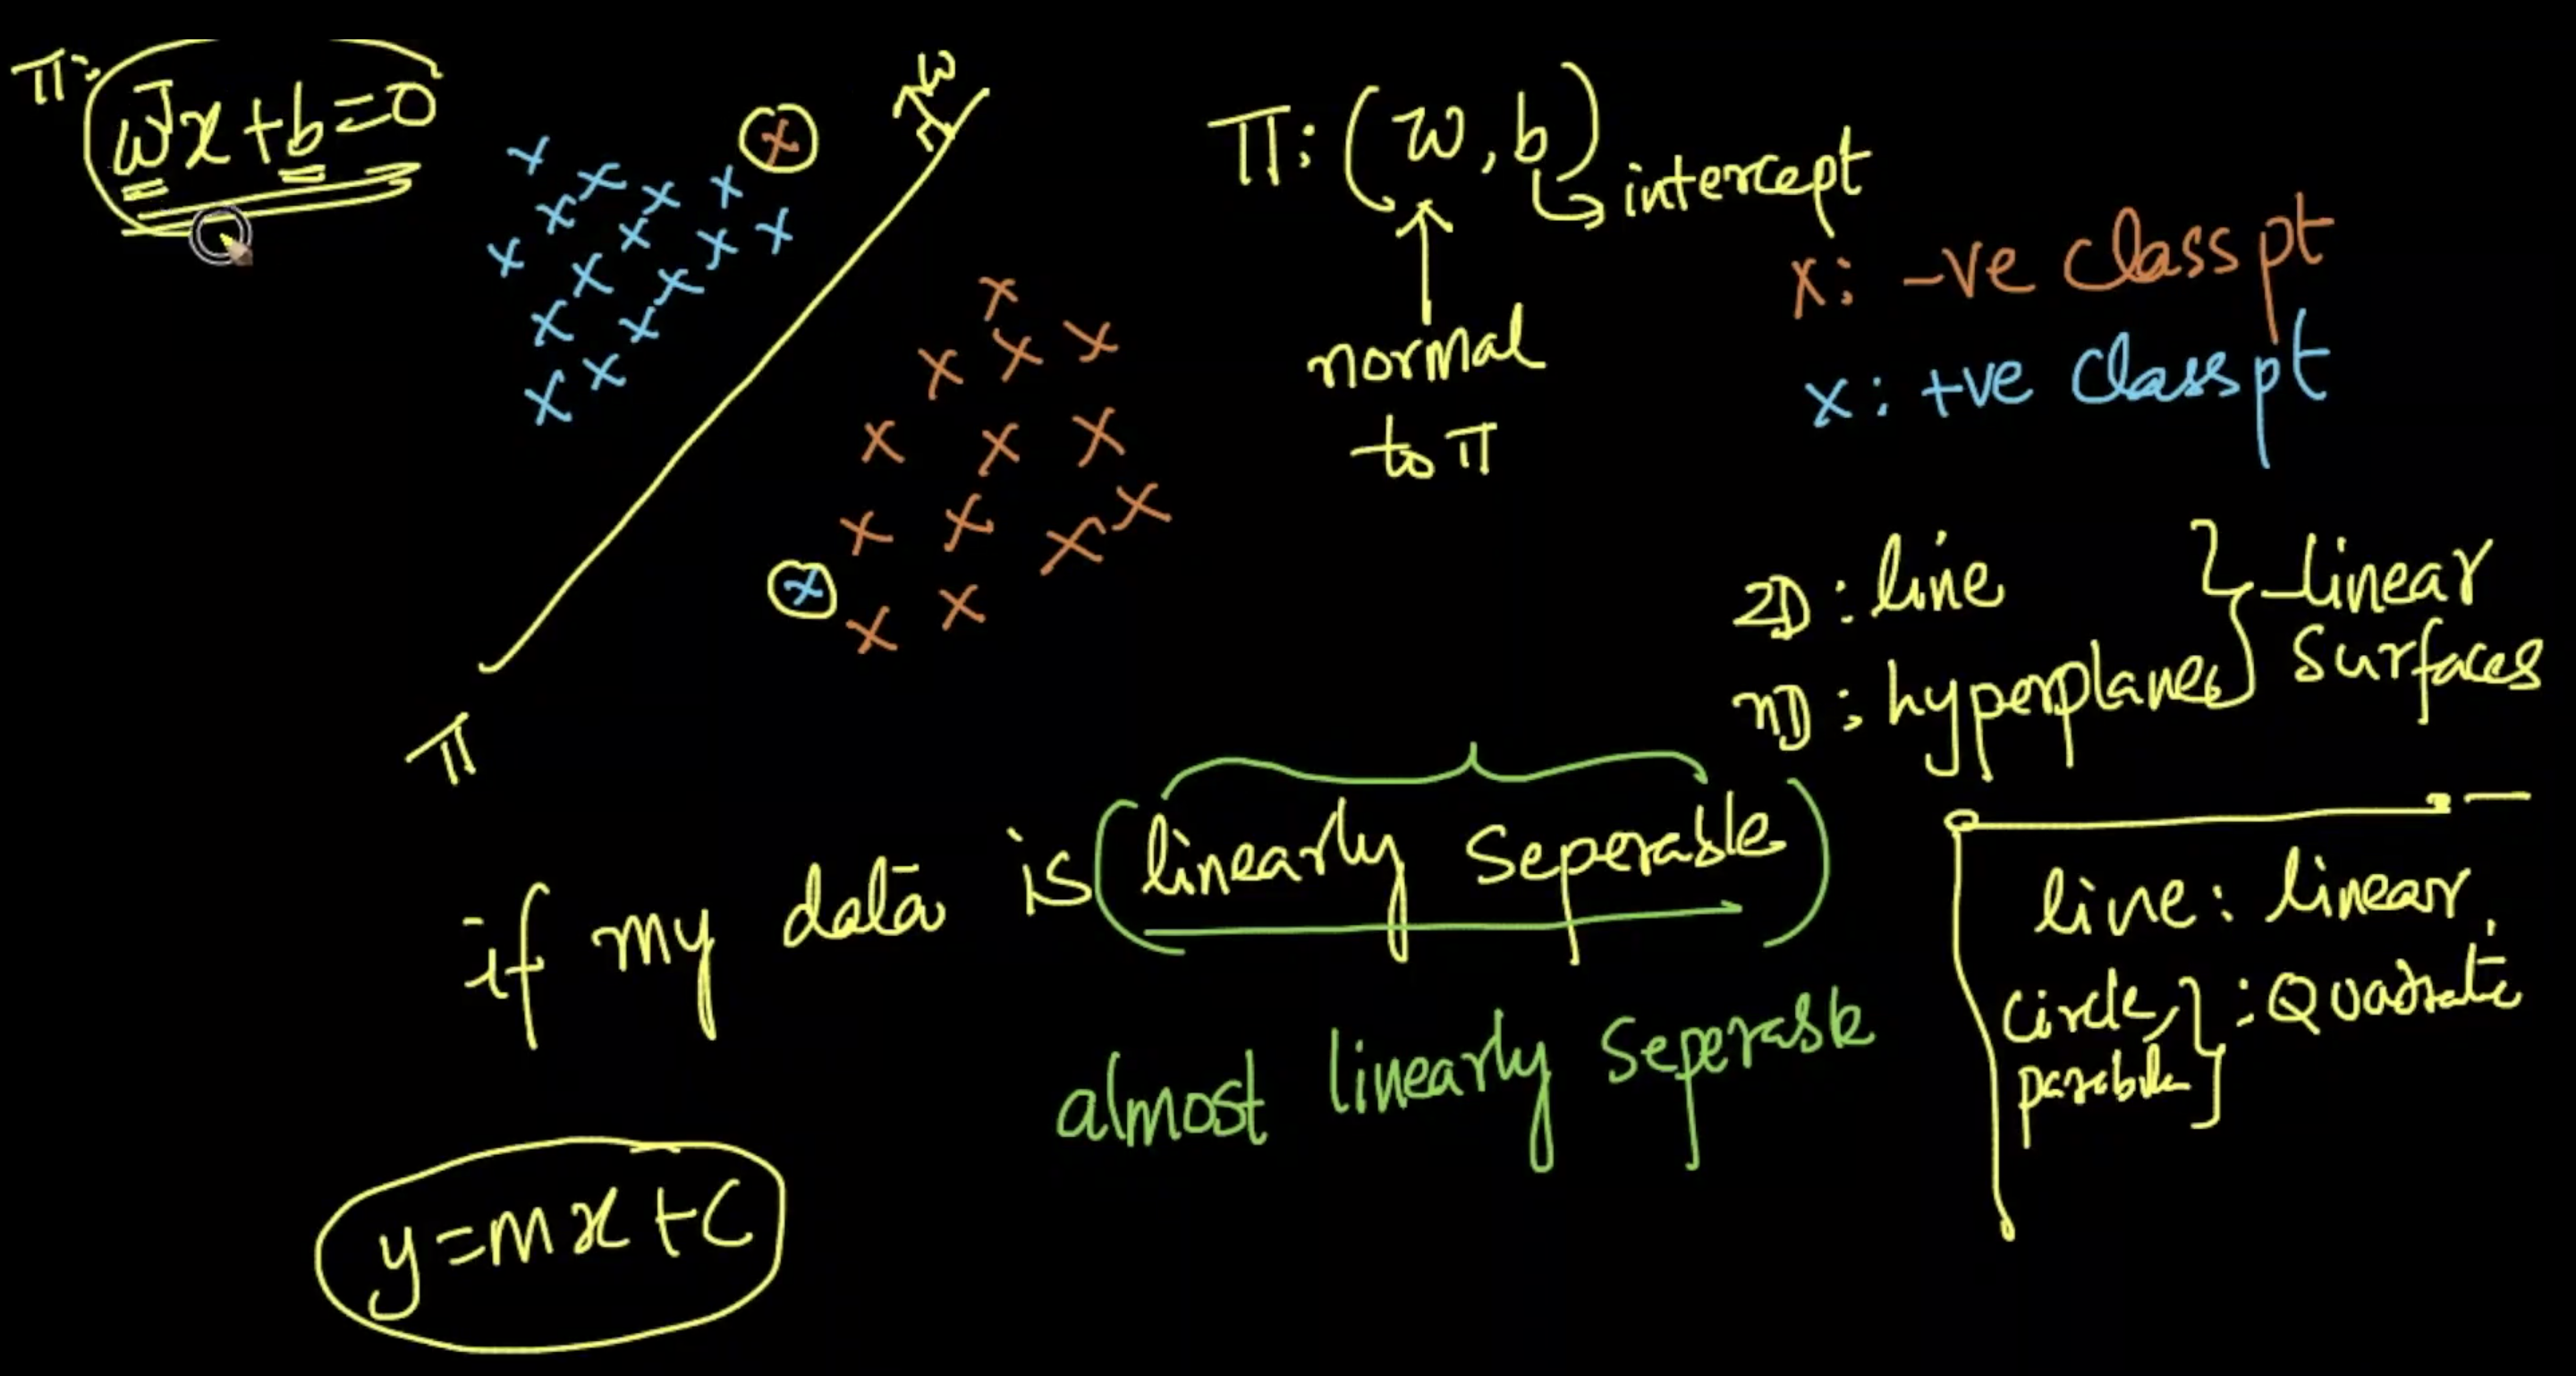 π: wᵀx + b = 0
w
π: (w, b)
intercept
normal
to π
x: -ve class pt
x: +ve class pt
2D: line
nD: hyperplanes
linear
surfaces
π
if my data is (linearly seperable)
almost linearly seperable
line: linear
circle,
parabola
: Quadratic
y = mx + c